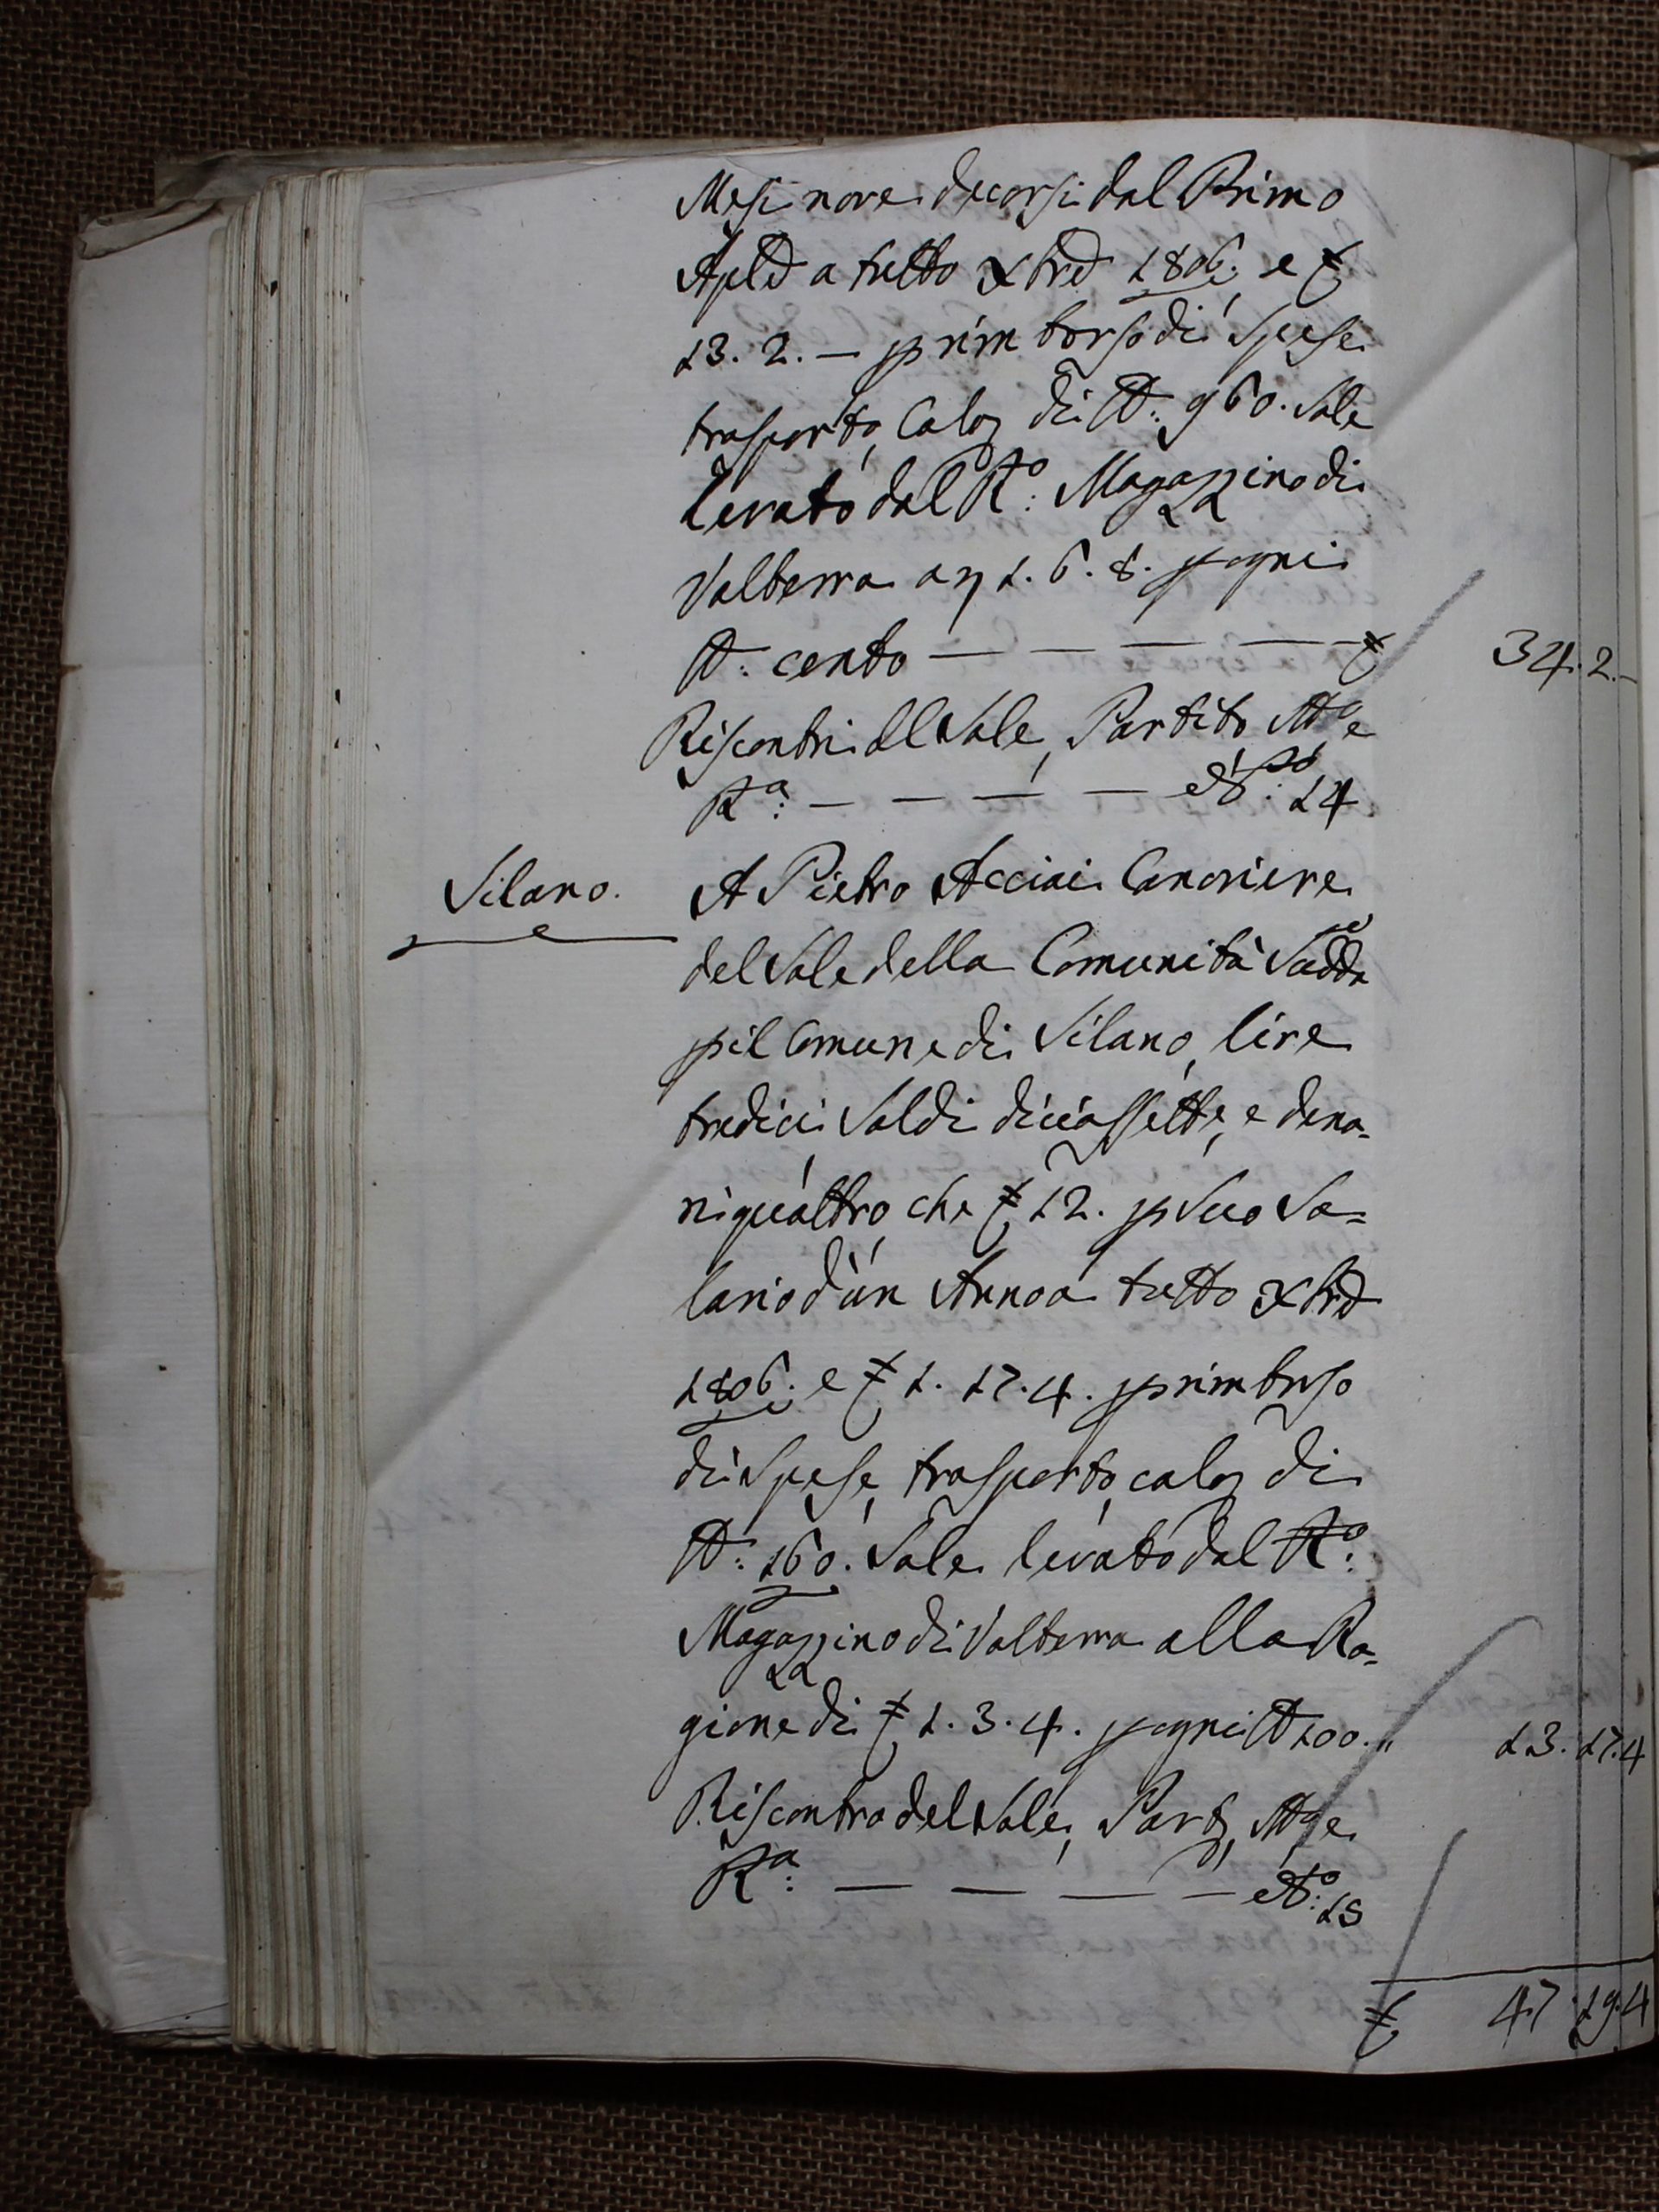 Mesi nove decorsi dal Primo
Aple a tutto Xbre 1806. e £
13. 2. — p rimborso di Spese
trasporto, Calo, di ℔: 960. Sale
levato dal R.o: Magazzino di
Volterra a £ 1. 6. 8. p ogni
℔: cento — — — — £ 34. 2. –
Riscontri del Sale, Partito, Mto e
Ra: — — — — No: 14
Silano. A Pietro Acciai Canoviere
del Sale della Comunità Sudda
p il Comune di Silano, lire
tredici Soldi diciassette, e dena=
ri quattro, che £ 12. p Suo Sa=
lario d'un Anno a tutto Xbre
1806. e £ 1. 17. 4. p rimborso
di Spese, trasporto, calo, di
℔: 160. Sale levato dal R.o:
Magazzino di Volterra alla Ra=
gione di £ 1. 3. 4. p ogni ℔ 100. " 13. 17. 4
Riscontro del Sale, Parto, Mto e
Ra: — — — — No: 15
£ 47 19. 4